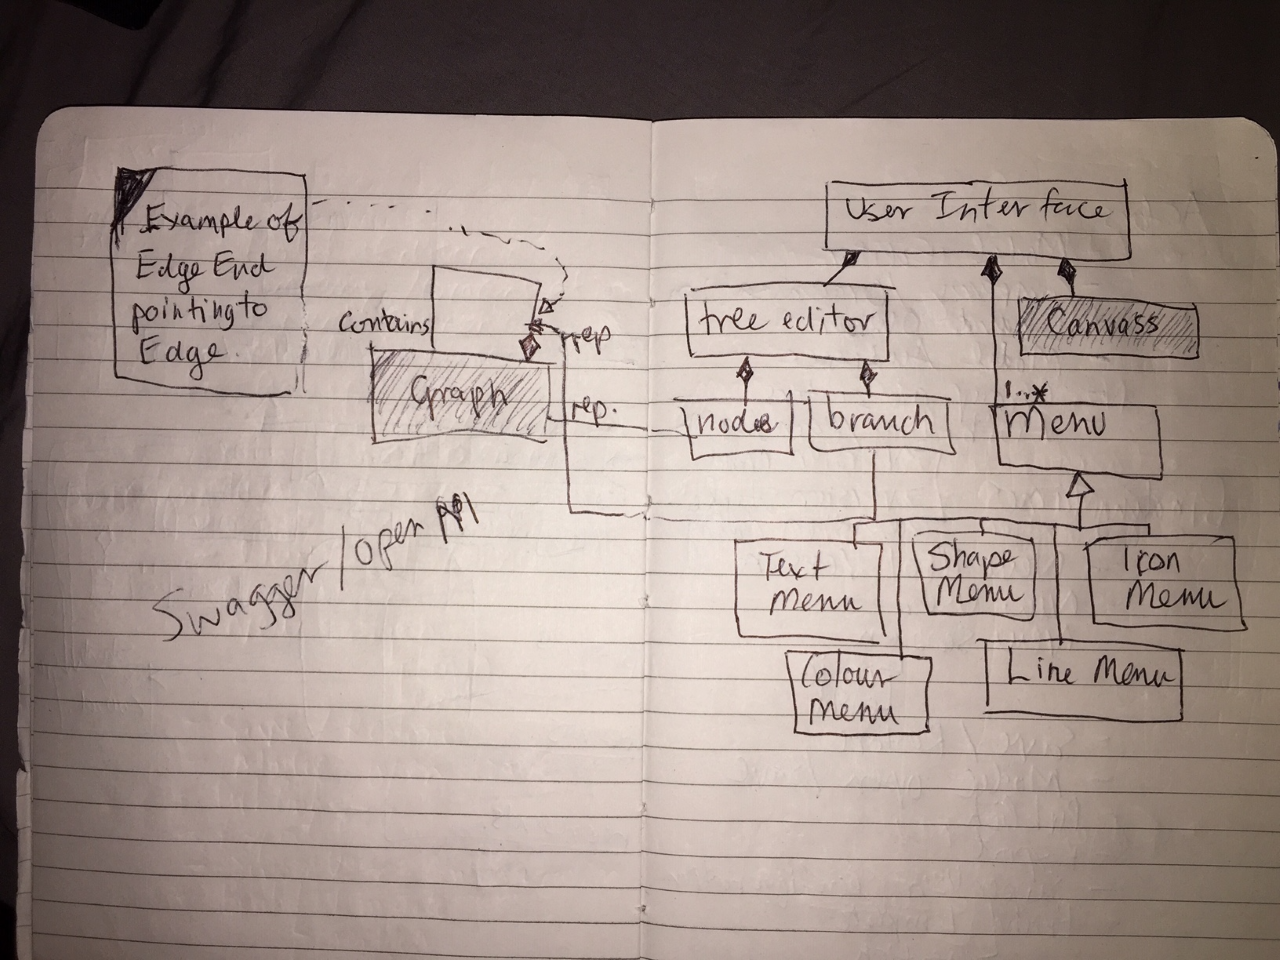 Example of
Edge End
pointing to
Edge.
contains
rep
Graph
rep.
Swagger/open API
User Interface
tree editor
Canvass
nodes
branch
1..*
Menu
Text
Menu
Shape
Menu
Icon
Menu
Colour
Menu
Line Menu